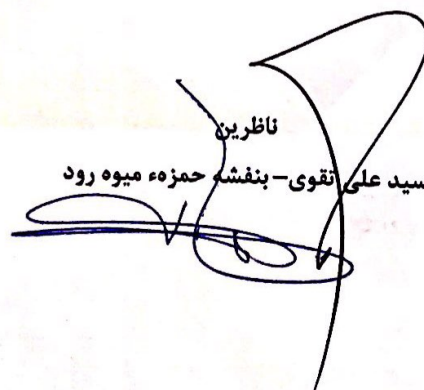 ناظرین
سید علی تقوی – بنفشه حمزهء میوه رود